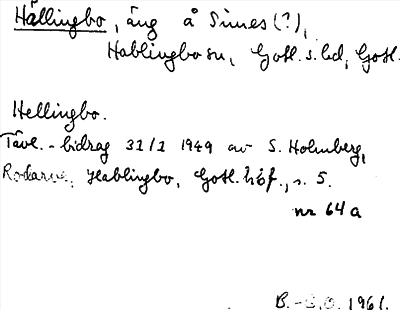 Hällingbo, äng å Simes (?),
Hablingbo sn, Gotl. s. hd, Gotl.
Hellingbo.
Tävl.-bidrag 31/1 1949 av S. Holmberg,
Rodarve, Hablingbo, Gotl. höf., s. 5.
nr 64a
B.-E.O. 1961.